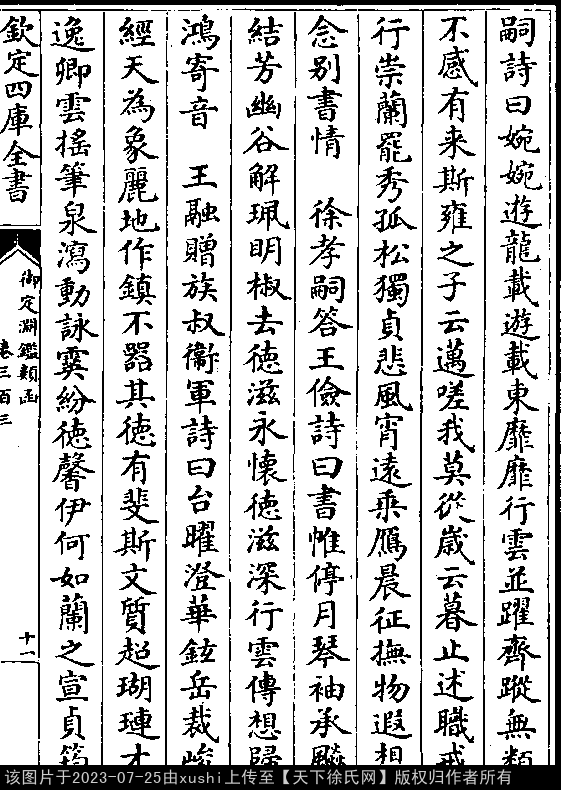 嗣詩曰婉婉遊龍載遊載東靡靡行雲並躍齊蹤無類
不感有来斯雍之子云邁嗟我莫從歲云暮止述職戒
行崇蘭罷秀孤松獨貞悲風宵遠乘鴈晨征撫物遐想
念别書情　徐孝嗣答王儉詩曰書帷停月琴袖承飈
結芳幽谷解珮明椒去徳滋永懷徳滋深行雲傳想歸
鴻寄音　王融贈族叔衞軍詩曰台曜澄華鉉岳裁峻
經天為象麗地作鎮不器其徳有斐斯文質超瑚璉才
逸卿雲揺筆泉瀉動詠霙紛徳馨伊何如蘭之宣貞筠
欽定四庫全書
御定淵鑑類函
卷三百三
十一
该图片于2023-07-25由xushi上传至【天下徐氏网】版权归作者所有